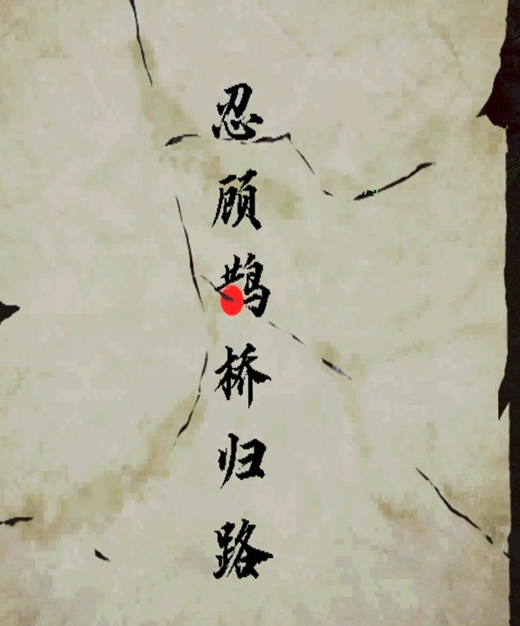 忍顾鹊桥归路